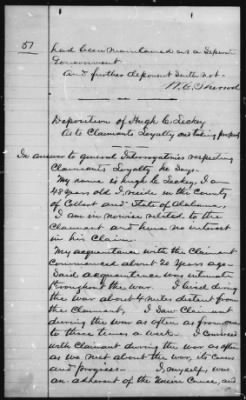 51
had been maintained as a separate
Government
And further deponent saith not.
W. C. Sherrod
Deposition of Hugh C. Leckey
As to Claimants Loyalty and taking property
In answer to general Interrogatories respecting
Claimants Loyalty he Says.
My name is Hugh C. Leckey, I am
48 years old I reside in the County
of Colbert and State of Alabama.
I am in nowise related to the
Claimant and have no interest
in his Claim.
My acquaintance with the Claimant
Commenced about 20 Years ago.
Said acquaintance was intimate
throughout the war. I lived
during the war about 4 miles distant from
the Claimant, I Saw Claimant
during the war as often as from one
to three times a week. I Conversed
with Claimant during the war as often
as we met about the war, its Causes
and progress. I, myself, was
an adherent of the Union Cause, and